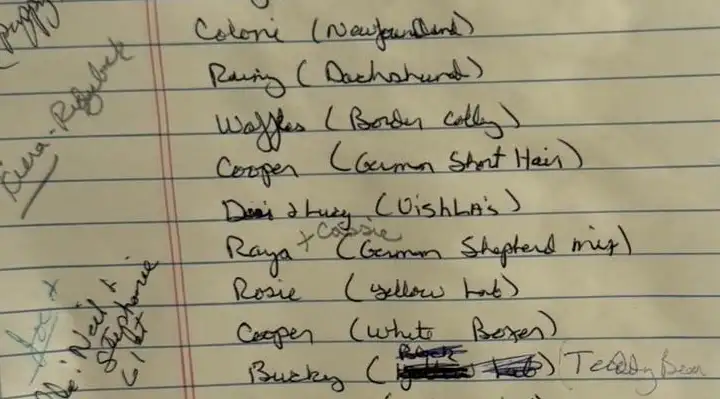 Colone (Newfoundland)
(Dachshund)
Waffles (Border Colly)
Cooper (German Short Hair)
& Luzy (VishLA's)
+ Cassie
Raya (German Shepherd mix)
Rosie (yellow Lab)
Cooper (White Boxer)
Bucky ( ) (Teddy Bear
(Puppy
Ridgeback
Neil &
Stephanie